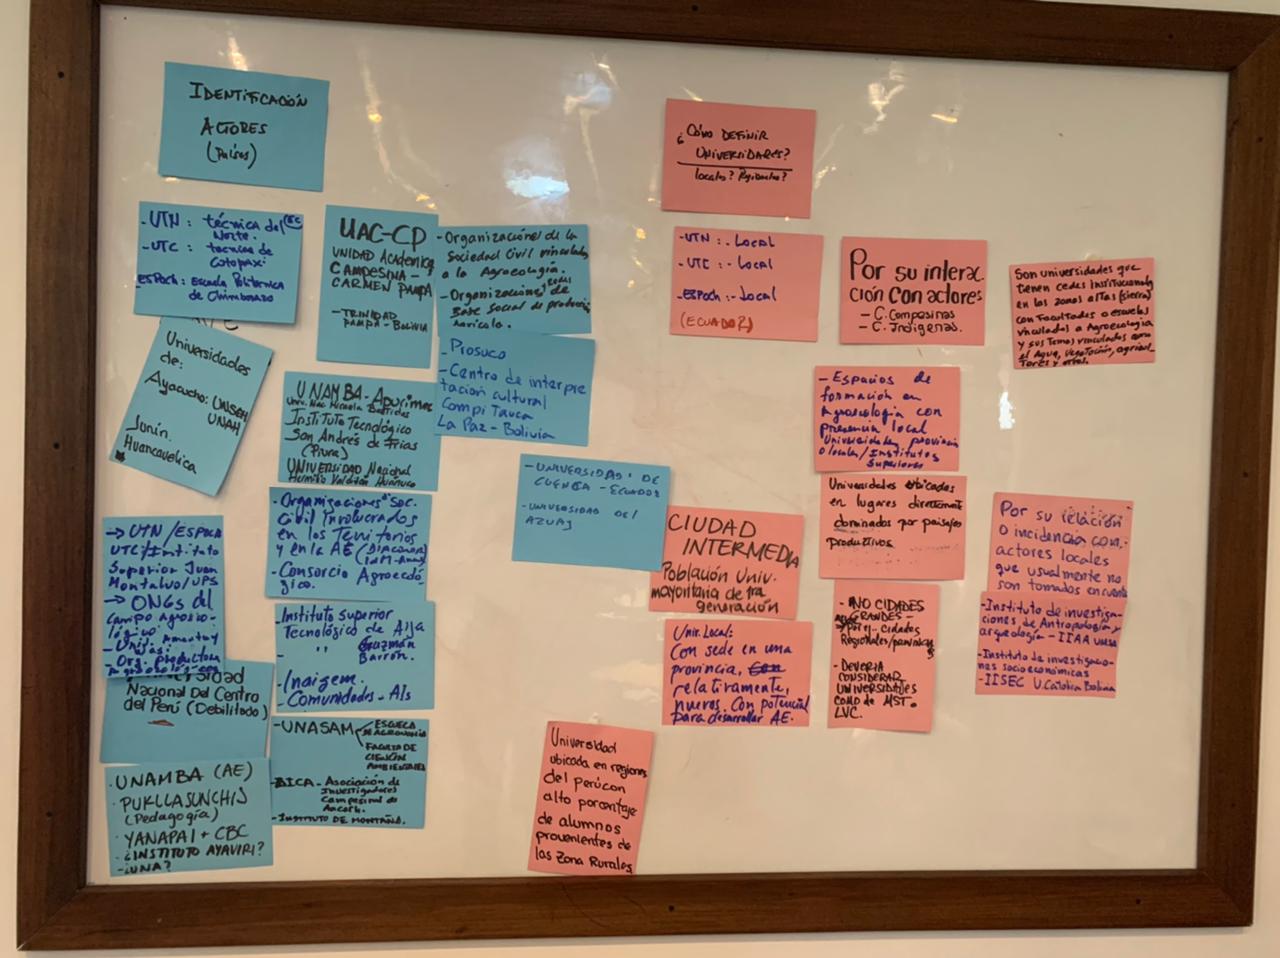 IDENTIFICACIÓN
ACTORES
(Países)
- UTN : técnica del EC
Norte.
- UTC : tecnica de
Cotopaxi
- ESPOCH : Escuela Politecnica
de Chimborazo
UAC-CP
UNIDAD ACADEMICA
CAMPESINA -
CARMEN PAMPA
- TRINIDAD
PAMPA - BOLIVIA
- Organizaciones de la
Sociedad Civil vinculadas
a la Agroecología.
- Organizaciones
Base Social de producción
- Prosuco
- Centro de interpre
tación cultural
Compi Tauca
La Paz - Bolivia
Universidades
de:
Ayacucho: UNSCH
UNAH
Junín
Huancavelica
UNAMBA - Apurimac
Univ. Nac Micaela Bastidas
Instituto Tecnológico
San Andrés de Frias
(Piura)
UNIVERSIDAD Nacional
Hermilio Valdizán Huánuco
- Organizaciones Soc.
Civil Involucrados
en los Territorios
y en la AE
- Consorcio Agroecoló-
gico.
- UNIVERSIDAD DE
CUENCA - ECUADOR
- UNIVERSIDAD DEL
AZUAY
→ UTN/ESPOCH
UTC/Instituto
Superior Juan
Montalvo/UPS
→ ONGs del
campo agroeco-
lógico
- Org. productora
- Instituto Superior
Tecnológico de Aija
- " " Guzmán
Barrón.
- Inaigem.
- Comunidades - AIs
Nacional Del Centro
del Perú (Debilitado)
- UNASAM ESCUELA
DE AGRONOMIA
FACULTAD DE
CIENCIAS
AMBIENTALES
- AICA - Asociación de
Investigadores
Campesinos de
Ancash.
- INSTITUTO DE MONTAÑA.
· UNAMBA (AE)
· PUKLLASUNCHIS
(Pedagogía)
· YANAPAI + CBC
· ¿INSTITUTO AYAVIRI?
- ¿UNA?
¿CÓMO DEFINIR
UNIVERSIDADES?
locales? Regionales?
- UTN : - Local
- UTC : - Local
- ESPOCH : - Local
(ECUADOR)
Por su interac-
ción con actores
- C. Campesinas
- C. Indígenas.
Son universidades que
tienen cedes institucionales
en las zonas altas (sierra)
con Facultades o escuelas
vinculados a Agroecología
y sus Temas vinculados como
el Agua, vegetación, agricul-
tores y otros.
- Espacios de
formación en
Agroecología con
presencia local
Universidades provincia
o locales/Institutos
Superiores
Universidades ubicadas
en lugares directamente
dominados por paisajes
productivos.
Por su relación
o incidencia con
actores locales
que usualmente no
son tomados encuenta
CIUDAD
INTERMEDIA
Población Univ.
mayoritaria de 1ra
generación
- NO CIDADES
GRANDES -
Regionales/
- DEVERIA
CONSIDERAR
UNIVERSIDADES
COMO DE MST o
LVC.
- Instituto de investiga-
ciones de Antropología y
arqueología - IIAA UMSA
- Instituto de investigacio-
nes socioeconómicas
- IISEC U. Católica Bolivia
Univ. Local:
Con sede en una
provincia,
relativamente,
nuevas. Con potencial
para desarrollar AE.
Universidad
ubicada en regiones
del perú con
alto porcentaje
de alumnos
provenientes de
las Zona Rurales